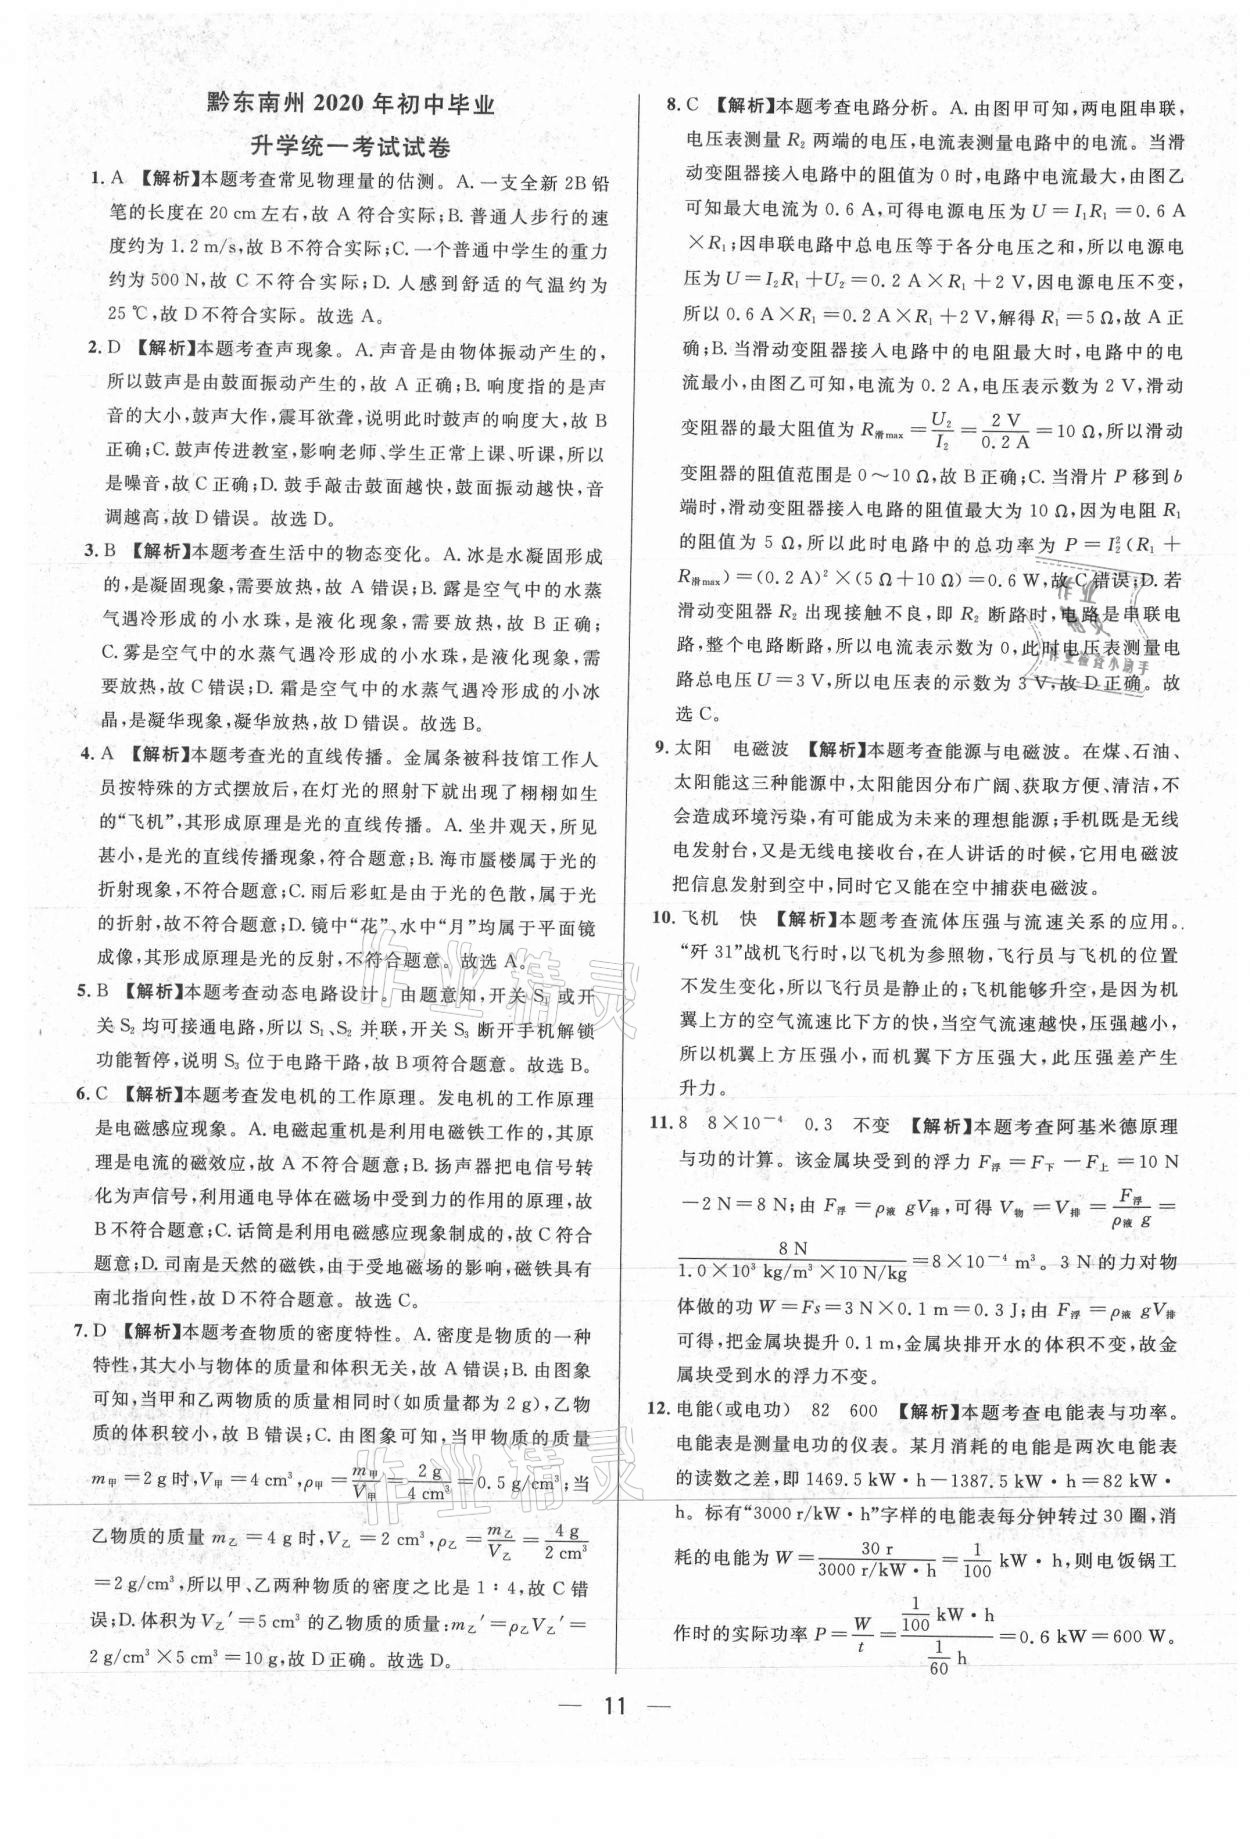 黔东南州 2020 年初中毕业
升学统一考试试卷
1. A 【解析】本题考查常见物理量的估测。A. 一支全新 2B 铅
笔的长度在 20 cm 左右,故 A 符合实际;B. 普通人步行的速
度约为 1.2 m/s,故 B 不符合实际;C. 一个普通中学生的重力
约为 500 N,故 C 不符合实际;D. 人感到舒适的气温约为
25 ℃,故 D 不符合实际。故选 A。
2. D 【解析】本题考查声现象。A. 声音是由物体振动产生的,
所以鼓声是由鼓面振动产生的,故 A 正确;B. 响度指的是声
音的大小,鼓声大作,震耳欲聋,说明此时鼓声的响度大,故 B
正确;C. 鼓声传进教室,影响老师、学生正常上课、听课,所以
是噪音,故 C 正确;D. 鼓手敲击鼓面越快,鼓面振动越快,音
调越高,故 D 错误。故选 D。
3. B 【解析】本题考查生活中的物态变化。A. 冰是水凝固形成
的,是凝固现象,需要放热,故 A 错误;B. 露是空气中的水蒸
气遇冷形成的小水珠,是液化现象,需要放热,故 B 正确;
C. 雾是空气中的水蒸气遇冷形成的小水珠,是液化现象,需
要放热,故 C 错误;D. 霜是空气中的水蒸气遇冷形成的小冰
晶,是凝华现象,凝华放热,故 D 错误。故选 B。
4. A 【解析】本题考查光的直线传播。金属条被科技馆工作人
员按特殊的方式摆放后,在灯光的照射下就出现了栩栩如生
的“飞机”,其形成原理是光的直线传播。A. 坐井观天,所见
甚小,是光的直线传播现象,符合题意;B. 海市蜃楼属于光的
折射现象,不符合题意;C. 雨后彩虹是由于光的色散,属于光
的折射,故不符合题意;D. 镜中“花”、水中“月”均属于平面镜
成像,其形成原理是光的反射,不符合题意。故选 A。
5. B 【解析】本题考查动态电路设计。由题意知,开关 S₁ 或开
关 S₂ 均可接通电路,所以 S₁、S₂ 并联,开关 S₃ 断开手机解锁
功能暂停,说明 S₃ 位于电路干路,故 B 项符合题意。故选 B。
6. C 【解析】本题考查发电机的工作原理。发电机的工作原理
是电磁感应现象。A. 电磁起重机是利用电磁铁工作的,其原
理是电流的磁效应,故 A 不符合题意;B. 扬声器把电信号转
化为声信号,利用通电导体在磁场中受到力的作用的原理,故
B 不符合题意;C. 话筒是利用电磁感应现象制成的,故 C 符合
题意;D. 司南是天然的磁铁,由于受地磁场的影响,磁铁具有
南北指向性,故 D 不符合题意。故选 C。
7. D 【解析】本题考查物质的密度特性。A. 密度是物质的一种
特性,其大小与物体的质量和体积无关,故 A 错误;B. 由图象
可知,当甲和乙两物质的质量相同时(如质量都为 2 g),乙物
质的体积较小,故 B 错误;C. 由图象可知,当甲物质的质量
m甲=2 g 时,V甲=4 cm³,ρ甲=m甲/V甲=2 g/4 cm³=0.5 g/cm³;当
乙物质的质量 m乙=4 g 时,V乙=2 cm³,ρ乙=m乙/V乙=4 g/2 cm³
=2 g/cm³,所以甲、乙两种物质的密度之比是 1∶4,故 C 错
误;D. 体积为 V乙′=5 cm³ 的乙物质的质量:m乙′=ρ乙V乙′=
2 g/cm³×5 cm³=10 g,故 D 正确。故选 D。
8. C 【解析】本题考查电路分析。A. 由图甲可知,两电阻串联,
电压表测量 R₂ 两端的电压,电流表测量电路中的电流。当滑
动变阻器接入电路中的阻值为 0 时,电路中电流最大,由图乙
可知最大电流为 0.6 A,可得电源电压为 U=I₁R₁=0.6 A
×R₁;因串联电路中总电压等于各分电压之和,所以电源电
压为 U=I₂R₁+U₂=0.2 A×R₁+2 V,因电源电压不变,
所以 0.6 A×R₁=0.2 A×R₁+2 V,解得 R₁=5 Ω,故 A 正
确;B. 当滑动变阻器接入电路中的电阻最大时,电路中的电
流最小,由图乙可知,电流为 0.2 A,电压表示数为 2 V,滑动
变阻器的最大阻值为 R滑max=U₂/I₂=2 V/0.2 A=10 Ω,所以滑动
变阻器的阻值范围是 0～10 Ω,故 B 正确;C. 当滑片 P 移到 b
端时,滑动变阻器接入电路的阻值最大为 10 Ω,因为电阻 R₁
的阻值为 5 Ω,所以此时电路中的总功率为 P=I₂²(R₁+
R滑max)=(0.2 A)²×(5 Ω+10 Ω)=0.6 W,故 C 错误;D. 若
滑动变阻器 R₂ 出现接触不良,即 R₂ 断路时,电路是串联电
路,整个电路断路,所以电流表示数为 0,此时电压表测量电
路总电压 U=3 V,所以电压表的示数为 3 V,故 D 正确。故
选 C。
9. 太阳 电磁波 【解析】本题考查能源与电磁波。在煤、石油、
太阳能这三种能源中,太阳能因分布广阔、获取方便、清洁,不
会造成环境污染,有可能成为未来的理想能源;手机既是无线
电发射台,又是无线电接收台,在人讲话的时候,它用电磁波
把信息发射到空中,同时它又能在空中捕获电磁波。
10. 飞机 快 【解析】本题考查流体压强与流速关系的应用。
“歼 31”战机飞行时,以飞机为参照物,飞行员与飞机的位置
不发生变化,所以飞行员是静止的;飞机能够升空,是因为机
翼上方的空气流速比下方的快,当空气流速越快,压强越小,
所以机翼上方压强小,而机翼下方压强大,此压强差产生
升力。
11. 8 8×10⁻⁴ 0.3 不变 【解析】本题考查阿基米德原理
与功的计算。该金属块受到的浮力 F浮=F下－F上=10 N
－2 N=8 N;由 F浮=ρ液 gV排,可得 V物=V排=F浮/ρ液 g=
8 N/1.0×10³ kg/m³×10 N/kg=8×10⁻⁴ m³。3 N 的力对物
体做的功 W=Fs=3 N×0.1 m=0.3 J;由 F浮=ρ液 gV排
可得,把金属块提升 0.1 m,金属块排开水的体积不变,故金
属块受到水的浮力不变。
12. 电能(或电功) 82 600 【解析】本题考查电能表与功率。
电能表是测量电功的仪表。某月消耗的电能是两次电能表
的读数之差,即 1469.5 kW·h－1387.5 kW·h=82 kW·
h。标有“3000 r/kW·h”字样的电能表每分钟转过 30 圈,消
耗的电能为 W=30 r/3000 r/kW·h=1/100 kW·h,则电饭锅工
作时的实际功率 P=W/t=1/100 kW·h/1/60 h=0.6 kW=600 W。
— 11 —
作业精灵
作业精灵
作业
精灵
作业检查小助手